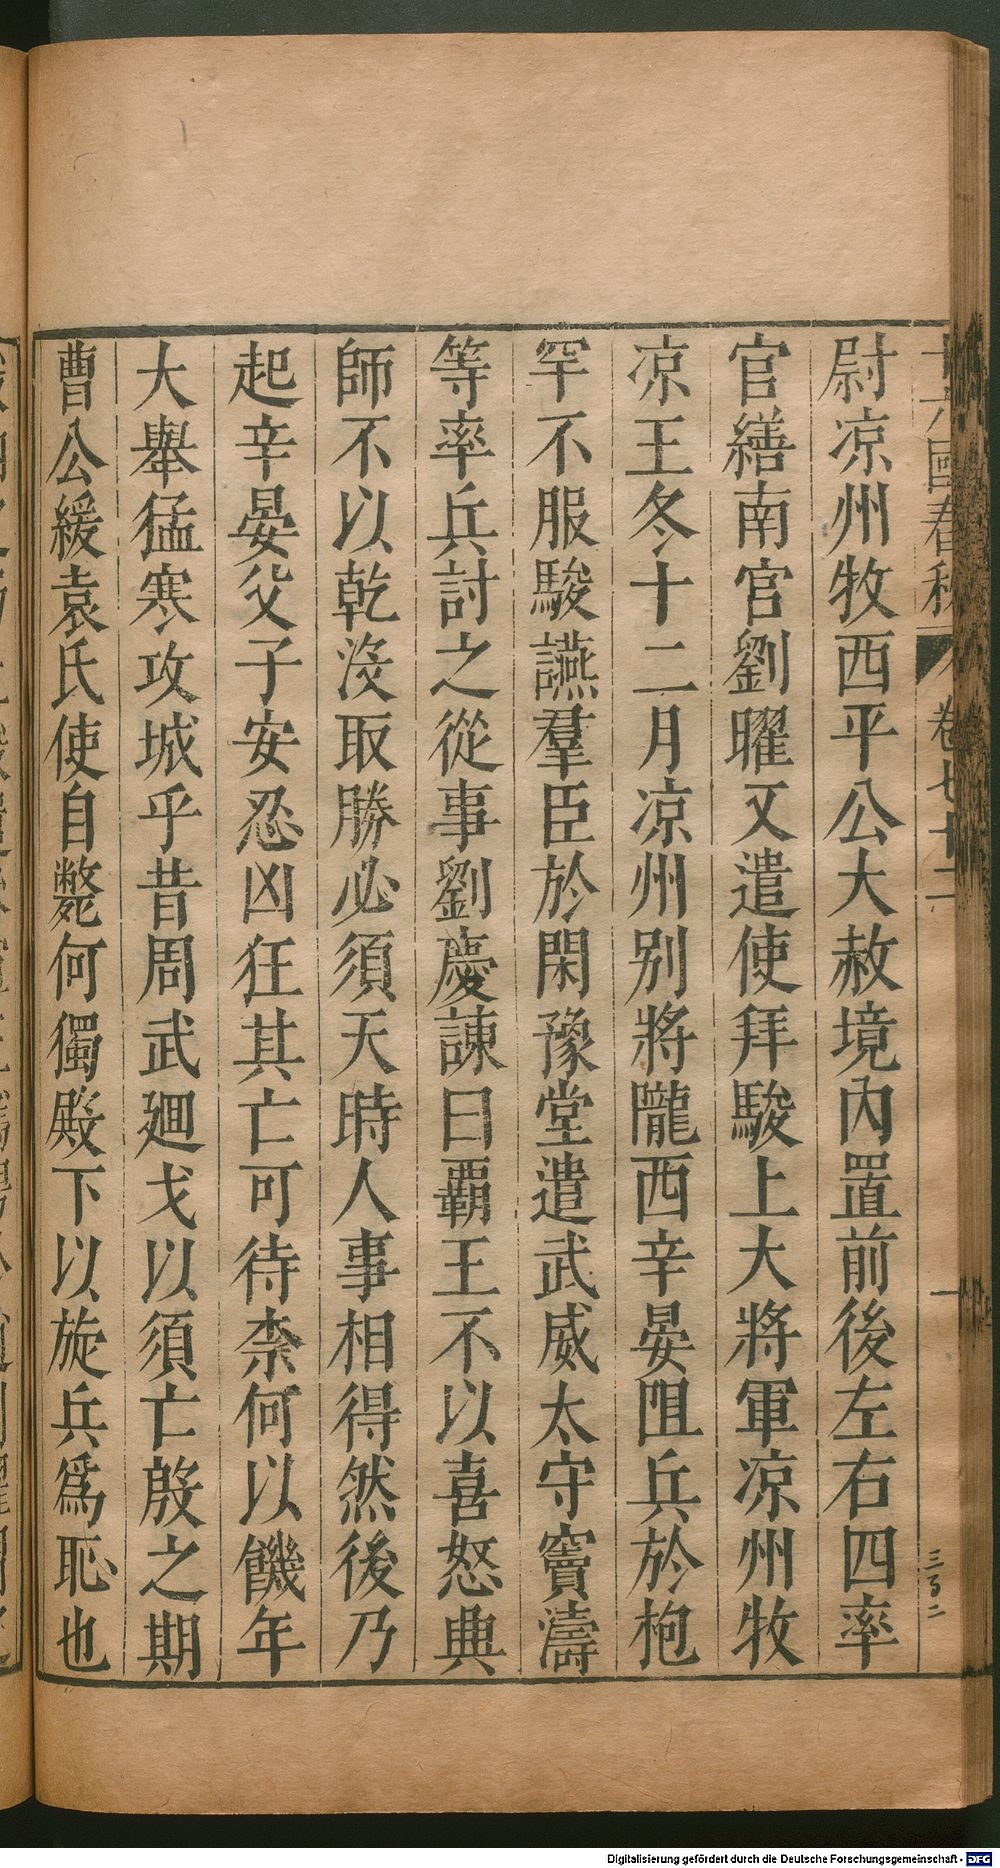 十六國春秋 卷七十二 一
三百二
尉凉州牧西平公大赦境內置前後左右四率
官繕南宮劉曜又遣使拜駿上大將軍凉州牧
凉王冬十二月凉州别將隴西辛晏阻兵於枹
罕不服駿讌羣臣於閑豫堂遣武威太守竇濤
等率兵討之從事劉慶諫曰覇王不以喜怒典
師不以乾沒取勝必須天時人事相得然後乃
起辛晏父子安忍凶狂其亡可待柰何以饑年
大舉猛寒攻城乎昔周武廻戈以須亡殷之期
曹公緩袁氏使自斃何獨殿下以旋兵爲恥也
Digitalisierung gefördert durch die Deutsche Forschungsgemeinschaft - DFG